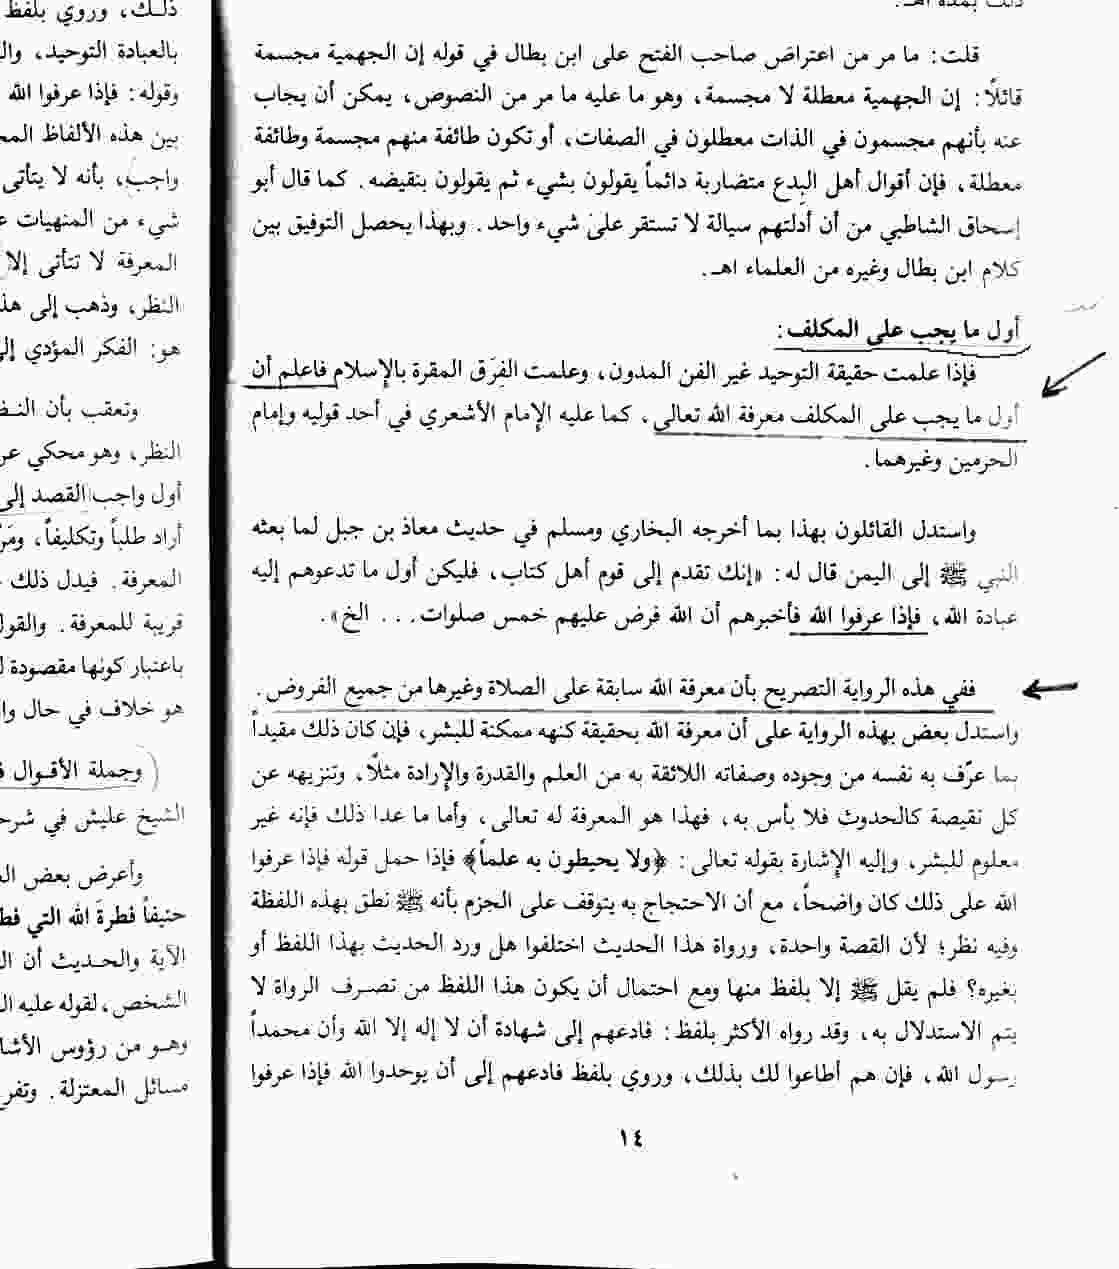 ذلك بمده اهـ.
قلت: ما مر من اعتراض صاحب الفتح على ابن بطال في قوله إن الجهمية مجسمة
قائلاً: إن الجهمية معطلة لا مجسمة، وهو ما عليه ما مر من النصوص، يمكن أن يجاب
عنه بأنهم مجسمون في الذات معطلون في الصفات، أو تكون طائفة منهم مجسمة وطائفة
معطلة، فإن أقوال أهل البدع متضاربة دائماً يقولون بشيء ثم يقولون بنقيضه. كما قال أبو
إسحاق الشاطبي من أن أدلتهم سيالة لا تستقر على شيء واحد. وبهذا يحصل التوفيق بين
كلام ابن بطال وغيره من العلماء اهـ.
أول ما يجب على المكلف:
فإذا علمت حقيقة التوحيد غير الفن المدون، وعلمت الفرَق المقرة بالإسلام فاعلم أن
أول ما يجب على المكلف معرفة الله تعالى، كما عليه الإمام الأشعري في أحد قوليه وإمام
الحرمين وغيرهما.
واستدل القائلون بهذا بما أخرجه البخاري ومسلم في حديث معاذ بن جبل لما بعثه
النبي ﷺ إلى اليمن قال له: «إنك تقدم إلى قوم أهل كتاب، فليكن أول ما تدعوهم إليه
عبادة الله، فإذا عرفوا الله فأخبرهم أن الله فرض عليهم خمس صلوات... الخ».
ففي هذه الرواية التصريح بأن معرفة الله سابقة على الصلاة وغيرها من جميع الفروض.
واستدل بعض بهذه الرواية على أن معرفة الله بحقيقة كنهه ممكنة للبشر، فإن كان ذلك مقيداً
بما عرّف به نفسه من وجوده وصفاته اللائقة به من العلم والقدرة والإرادة مثلًا، وتنزيهه عن
كل نقيصة كالحدوث فلا بأس به، فهذا هو المعرفة له تعالى، وأما ما عدا ذلك فإنه غير
معلوم للبشر، وإليه الإشارة بقوله تعالى: ﴿ولا يحيطون به علماً﴾ فإذا حمل قوله فإذا عرفوا
الله على ذلك كان واضحاً، مع أن الاحتجاج به يتوقف على الجزم بأنه ﷺ نطق بهذه اللفظة
وفيه نظر؛ لأن القصة واحدة، ورواة هذا الحديث اختلفوا هل ورد الحديث بهذا اللفظ أو
بغيره؟ فلم يقل ﷺ إلا بلفظ منها ومع احتمال أن يكون هذا اللفظ من تصرف الرواة لا
يتم الاستدلال به، وقد رواه الأكثر بلفظ: فادعهم إلى شهادة أن لا إله إلا الله وأن محمداً
رسول الله، فإن هم أطاعوا لك بذلك، وروي بلفظ فادعهم إلى أن يوحدوا الله فإذا عرفوا
١٤
ذلك، وروي بلفظ
بالعبادة التوحيد،
وقوله: فإذا عرفوا الله
بين هذه الألفاظ
واجب، بأنه لا يتأتى
شيء من المنهيات
المعرفة لا تتأتى إلا
النظر، وذهب إلى
هو: الفكر المؤدي
وتعقب بأن
النظر، وهو محكي
أول واجب القصد إلى
أراد طلباً وتكليفاً،
المعرفة. فيدل ذلك
قريبة للمعرفة.
باعتبار كونها مقصودة
هو خلاف في حال
وجملة الأقوال
الشيخ عليش في
وأعرض بعض
حنيفاً فطرةَ الله التي
الآية والحديث أن
الشخص، لقوله عليه
وهو من رؤوس
مسائل المعتزلة.